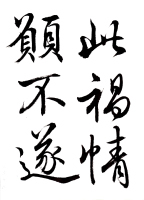 此禍情
願不遂